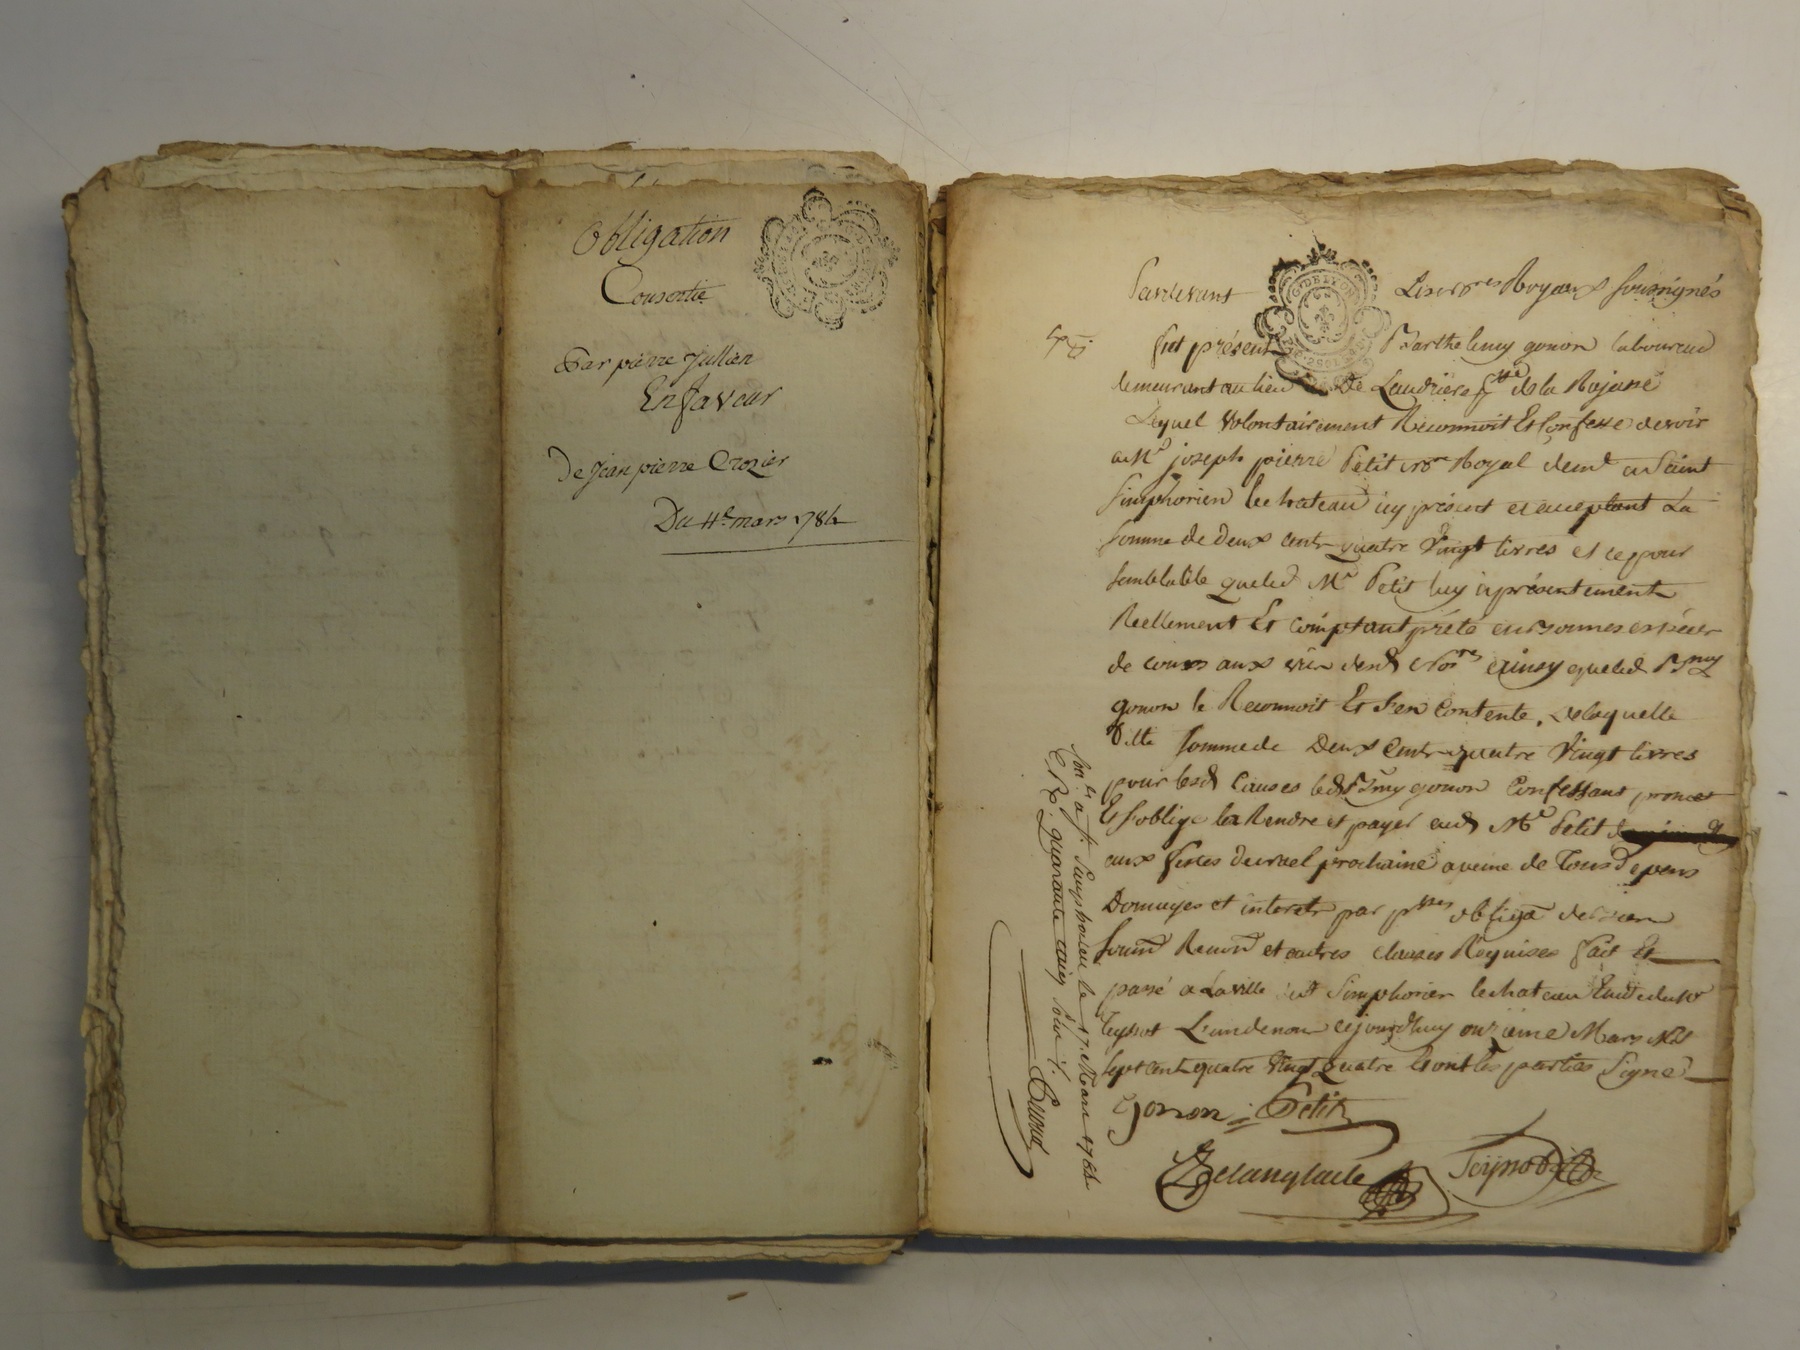 Obligation
Consentie
Par pierre Jullien
En faveur
De Jean pierre Crozier
Du 11e mars 1784
Pardevant Les nores Royaux soussignés
fut présent Barthelemy gonon laboureur
demeurant au lieu De Laudriere psse de la Rajasse
Lequel volontairement Reconnoit Et Confesse devoir
a Me joseph pierre Petit nore Royal demt a Saint
Simphorien le chateau icy présent et acceptant La
somme de Deux cent quatre Vingt livres et ce pour
semblable que led Me Petit luy a présentement
Reellement Et comptant prété en bonnes especes
de cours aux vue desd nores ainsy que led Bmy
gonon le Reconnoit Et s'en Contente, de laquelle
ditte somme de Deux Cent quatre Vingt livres
pour lesd Causes led Bmy gonon Confessant promet
Et s'oblige la Rendre et payer aud Me Petit
aux festes de noel prochaine a peine de Tous Depens
Domages et interets par psses obliga de bien
soumn Renonn et autres clauses Requises fait Et
passé a La ville de st Simphorien le chateau Etude du no
Teyssot L'un de nous cejourdhuy onzieme Mars Mil
sept cent quatre Vingt quatre Et ont les parties Signé
gonon Petit
Delanglade Teyssot
Con.lé a St. Simphorien le 17. Mars 1784
R. quarante cinq sous